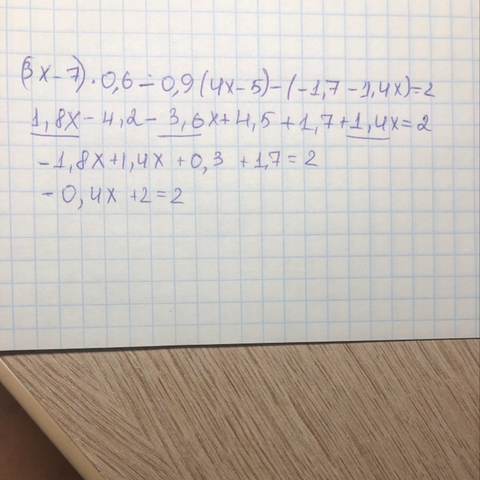 (3x-7)·0,6-0,9(4x-5)-(-1,7-1,4x)=2
1,8x-4,2-3,6x+4,5+1,7+1,4x=2
-1,8x+1,4x+0,3+1,7=2
-0,4x+2=2